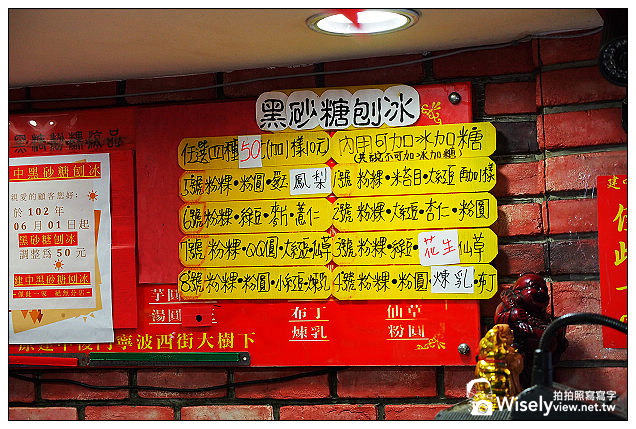 黑砂糖刨冰
任選四種50元(加1樣10元)
內用可加冰加糖
(外帶不可加冰加糖)
5號粉粿•粉圓•愛玉 鳳梨
1號 粉粿•米苔目•大紅豆 再加1樣
6號粉粿•綠豆•麥片•薏仁
2號粉粿•大紅豆•杏仁•粉圓
7號粉粿•QQ圓•大紅豆•仙草
3號粉粿•綠豆•花生•仙草
8號粉粿•粉圓•小紅豆•煉乳
4號粉粿•粉圓•煉乳•布丁
芋圓
湯圓
布丁
煉乳
仙草
粉圓
寧波西街大樹下
建中黑砂糖刨冰
親愛的顧客您好:
於 102 年
06 月 01 日起
黑砂糖刨冰
調整為 50 元
建中黑砂糖刨冰
僅此一家 絕無分店
拍拍照寫寫字
Wiselyview.net
www.wisely.net.tw